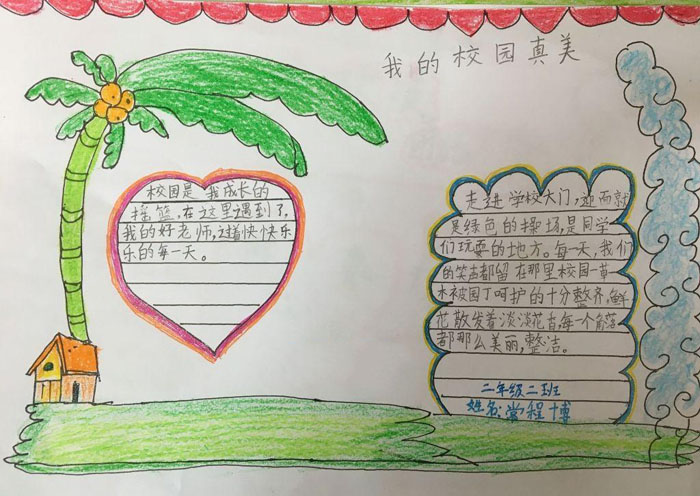 我的校园真美
校园是我成长的
摇篮,在这里遇到了,
我的好老师,过着快快乐
乐的每一天。
走进学校大门,迎面就
是绿色的操场,是同学
们玩耍的地方。每一天,我们
的笑声都留在那里校园一草一
木被园丁呵护的十分整齐,鲜
花散发着淡淡花香,每一个角落
都那么美丽,整洁。
二年级二班
姓名:常程博